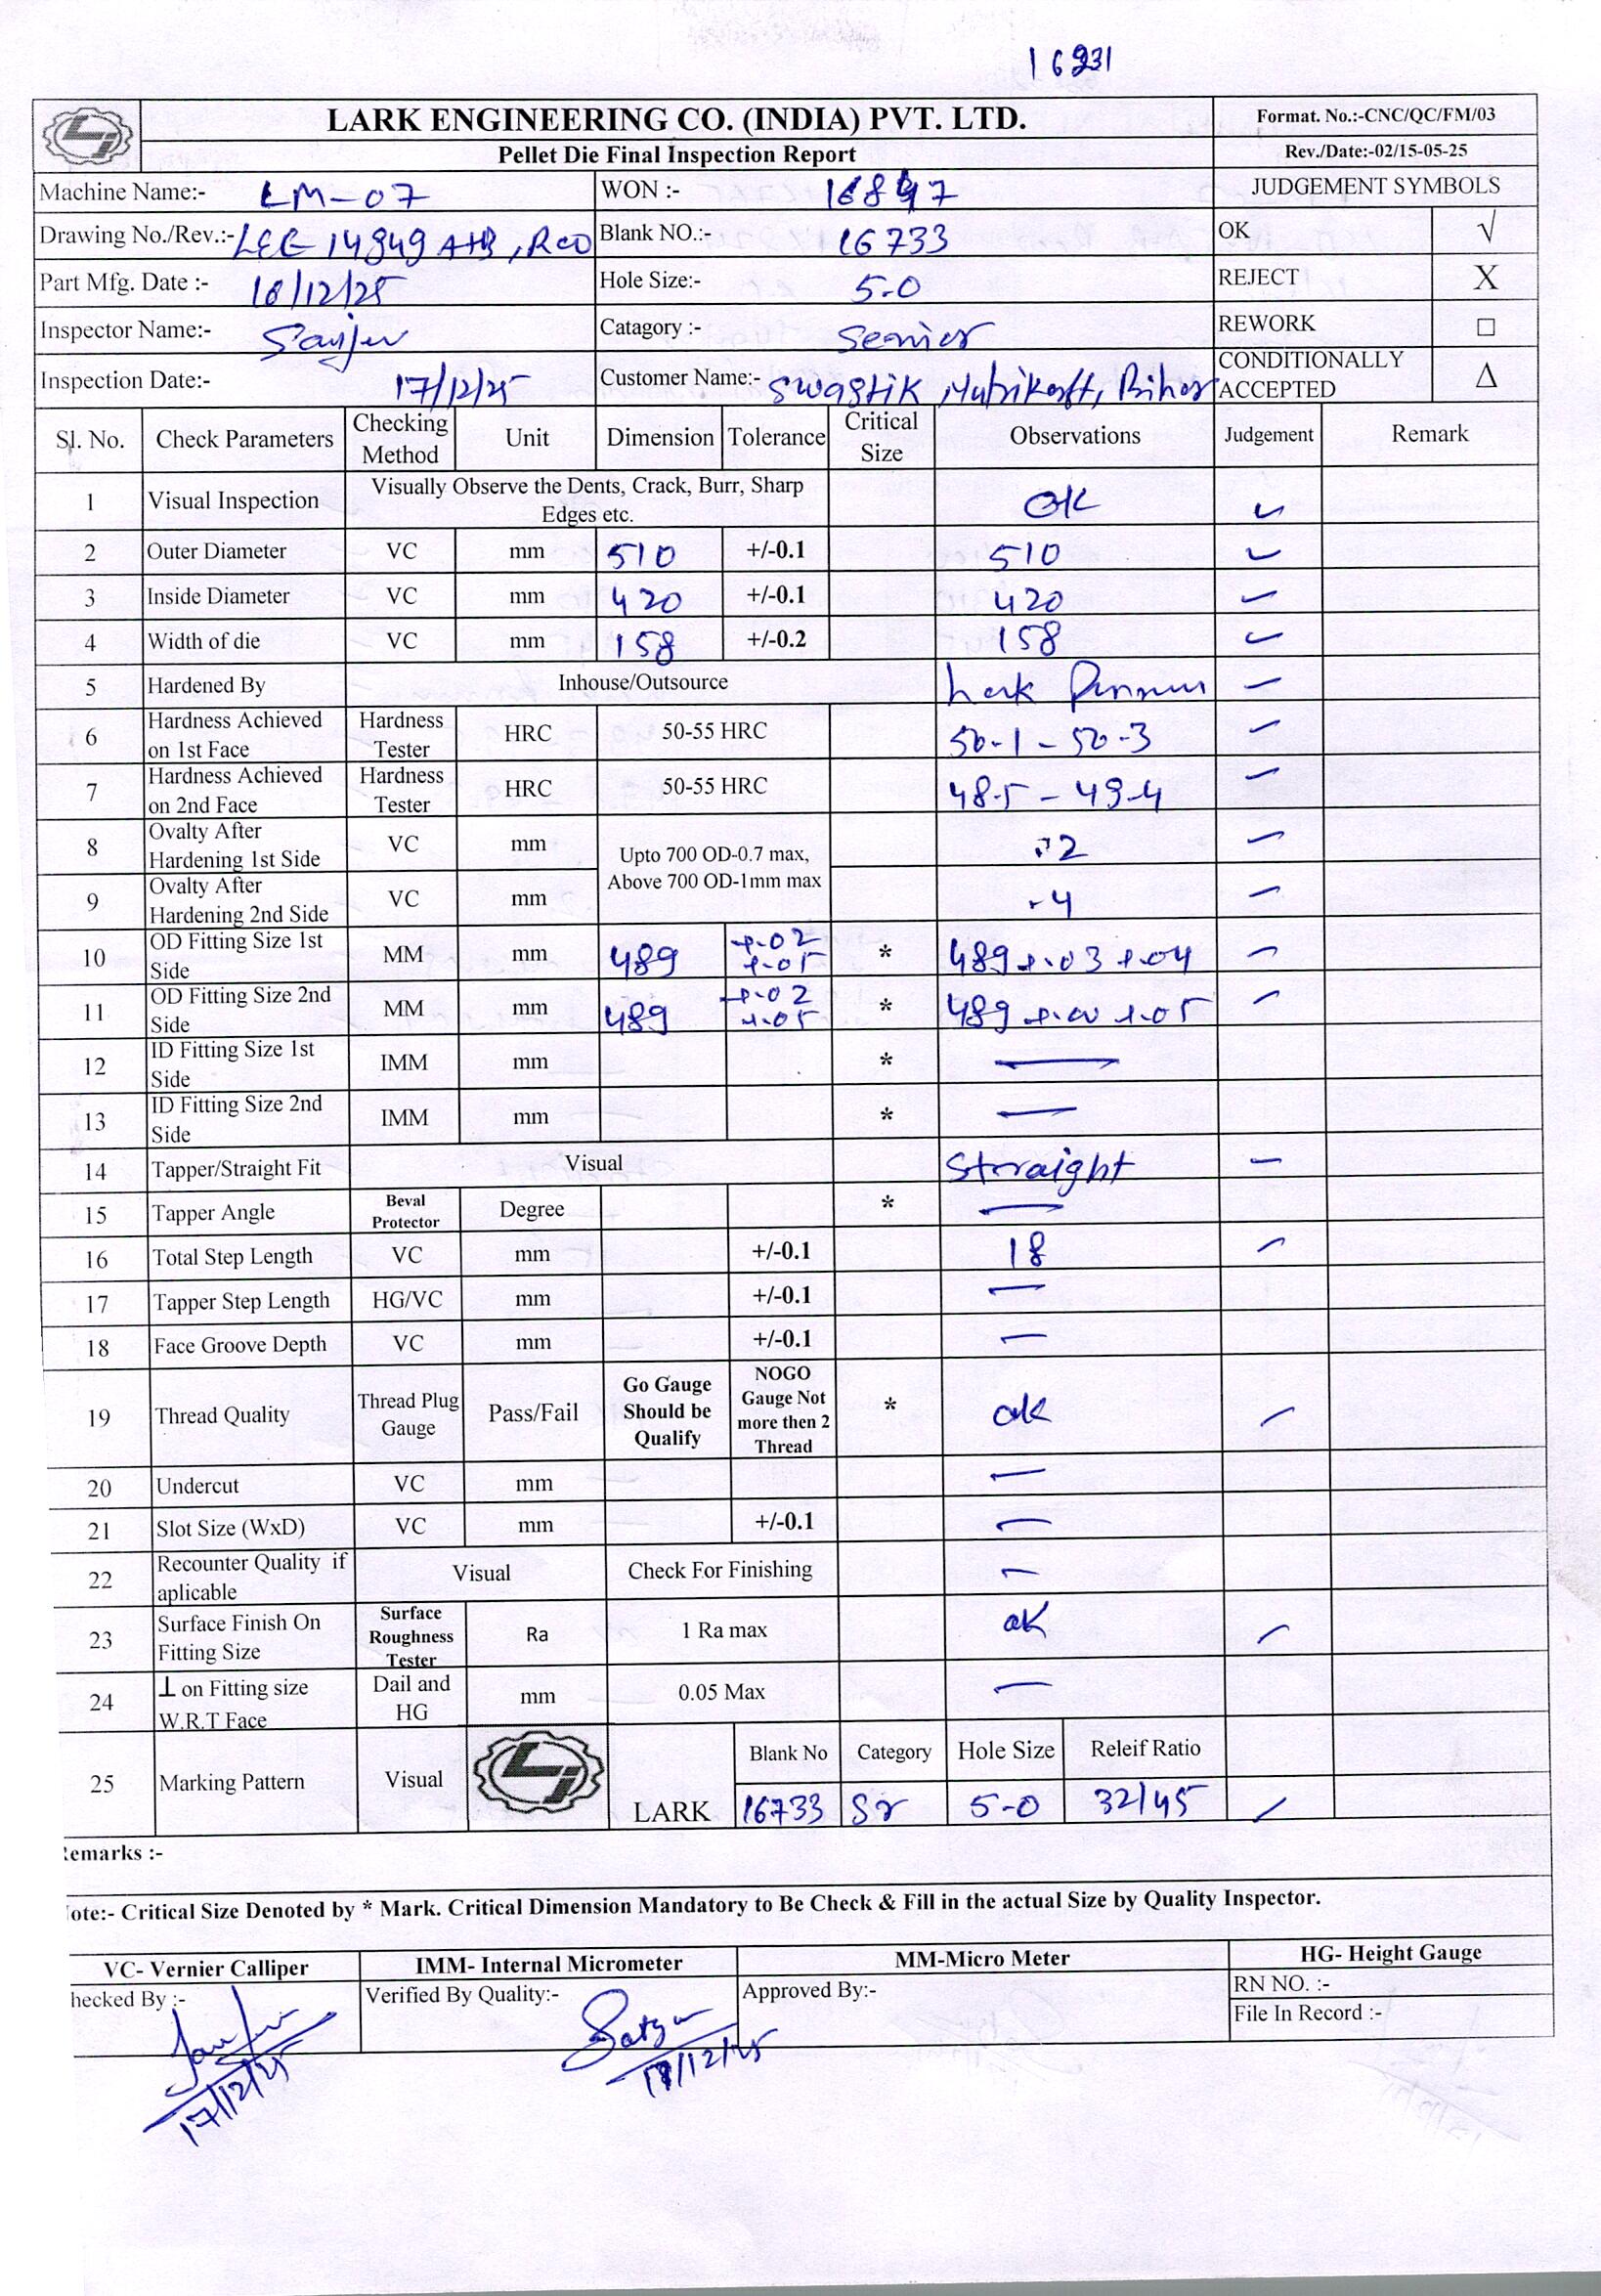 16231
LARK ENGINEERING CO. (INDIA) PVT. LTD.
Format. No.:-CNC/QC/FM/03
Pellet Die Final Inspection Report
Rev./Date:-02/15-05-25
Machine Name:- LM-07 WON :- 16847 JUDGEMENT SYMBOLS
Drawing No./Rev.:- LEE 14849 A+B, R00 Blank NO.:- 16733 OK √
Part Mfg. Date :- 16/12/25 Hole Size:- 5.0 REJECT X
Inspector Name:- Sanjeev Catagory :- Senior REWORK □
Inspection Date:- 17/12/25 Customer Name:- Swastik, Bihar CONDITIONALLY ACCEPTED Δ
Sl. No. Check Parameters Checking Method Unit Dimension Tolerance Critical Size Observations Judgement Remark
1 Visual Inspection Visually Observe the Dents, Crack, Burr, Sharp Edges etc. OK ✓
2 Outer Diameter VC mm 510 +/-0.1 510 ✓
3 Inside Diameter VC mm 420 +/-0.1 420 ✓
4 Width of die VC mm 158 +/-0.2 158 ✓
5 Hardened By Inhouse/Outsource Lark ✓
6 Hardness Achieved on 1st Face Hardness Tester HRC 50-55 HRC 50.1 - 50.3 ✓
7 Hardness Achieved on 2nd Face Hardness Tester HRC 50-55 HRC 48.5 - 49.4 ✓
8 Ovalty After Hardening 1st Side VC mm Upto 700 OD-0.7 max, Above 700 OD-1mm max .2 ✓
9 Ovalty After Hardening 2nd Side VC mm .4 ✓
10 OD Fitting Size 1st Side MM mm 489 +.02 +.05 * 489 +.03 +.04 ✓
11 OD Fitting Size 2nd Side MM mm 489 +.02 +.05 * 489 +.05 ✓
12 ID Fitting Size 1st Side IMM mm * —
13 ID Fitting Size 2nd Side IMM mm * —
14 Tapper/Straight Fit Visual Straight ✓
15 Tapper Angle Beval Protector Degree * —
16 Total Step Length VC mm +/-0.1 18 ✓
17 Tapper Step Length HG/VC mm +/-0.1 —
18 Face Groove Depth VC mm +/-0.1 —
19 Thread Quality Thread Plug Gauge Pass/Fail Go Gauge Should be Qualify NOGO Gauge Not more then 2 Thread * ok ✓
20 Undercut VC mm —
21 Slot Size (WxD) VC mm +/-0.1 —
22 Recounter Quality if aplicable Visual Check For Finishing —
23 Surface Finish On Fitting Size Surface Roughness Tester Ra 1 Ra max ok ✓
24 ⊥ on Fitting size W.R.T Face Dail and HG mm 0.05 Max —
25 Marking Pattern Visual LARK Blank No Category Hole Size Releif Ratio
16733 Sr 5.0 32/45 ✓
emarks :-
ote:- Critical Size Denoted by * Mark. Critical Dimension Mandatory to Be Check & Fill in the actual Size by Quality Inspector.
VC- Vernier Calliper IMM- Internal Micrometer MM-Micro Meter HG- Height Gauge
hecked By :- Verified By Quality:- Approved By:- RN NO. :-
File In Record :-
17/12/25 17/12/25